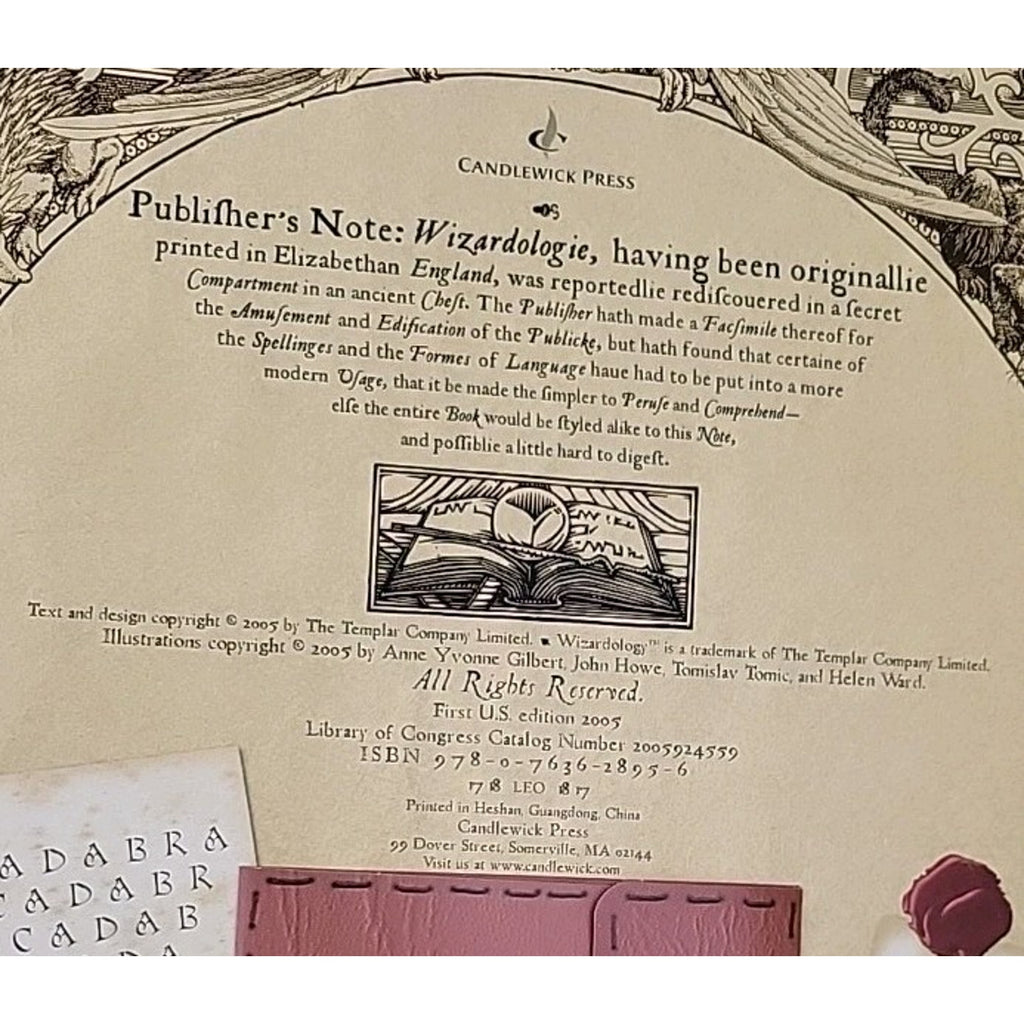 CANDLEWICK PRESS
Publiſher's Note: Wizardologie, having been originallie
printed in Elizabethan England, was reportedlie rediſcouered in a ſecret
Compartment in an ancient Cheſt. The Publiſher hath made a Facſimile thereof for
the Amuſement and Edification of the Publicke, but hath found that certaine of
the Spellinges and the Formes of Language haue had to be put into a more
modern Uſage, that it be made the ſimpler to Peruſe and Comprehend—
elſe the entire Book would be ſtyled alike to this Note,
and poſſiblie a little hard to digeſt.
Text and design copyright © 2005 by The Templar Company Limited. ▪ Wizardology™ is a trademark of The Templar Company Limited.
Illustrations copyright © 2005 by Anne Yvonne Gilbert, John Howe, Tomislav Tomic, and Helen Ward.
All Rights Reserved.
First U.S. edition 2005
Library of Congress Catalog Number 2005924559
ISBN 978-0-7636-2895-6
17 18 LEO 18 17
Printed in Heshan, Guangdong, China
Candlewick Press
99 Dover Street, Somerville, MA 02144
Visit us at www.candlewick.com
ADABRA
CADABR
CADAB
DA